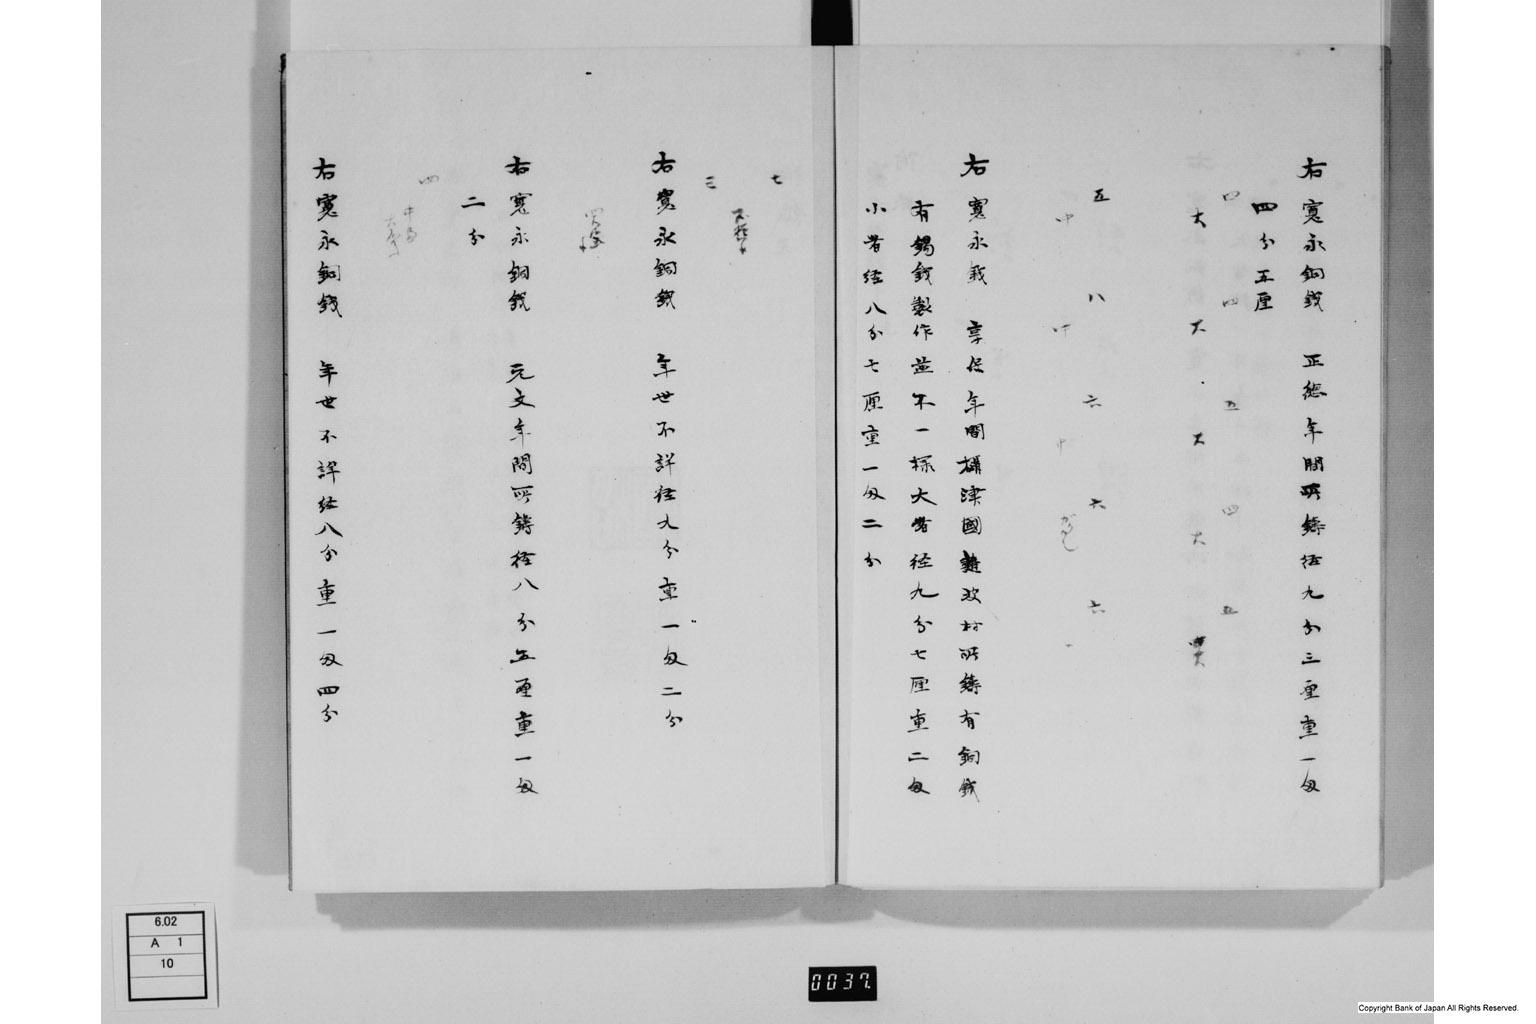 右寛永銅銭 正徳年間所鋳径九分三厘重一匁
四分五厘
四 四 五 四 五
大 大 大 大
五 八 六 六 六
中 中 中
右寛永銭 享保年間攝津國難波村所鋳有銅銭
有錫銭製作並不一様大者径九分七厘重二匁
小者径八分七厘重一匁二分
七
三
右寛永銅銭 年世不詳径九分重一匁二分
右寛永銅銭 元文年間所鋳径八分五厘重一匁
二分
四
右寛永銅銭 年世不詳径八分重一匁四分
6.02
A 1
10
0037
Copyright Bank of Japan All Rights Reserved.